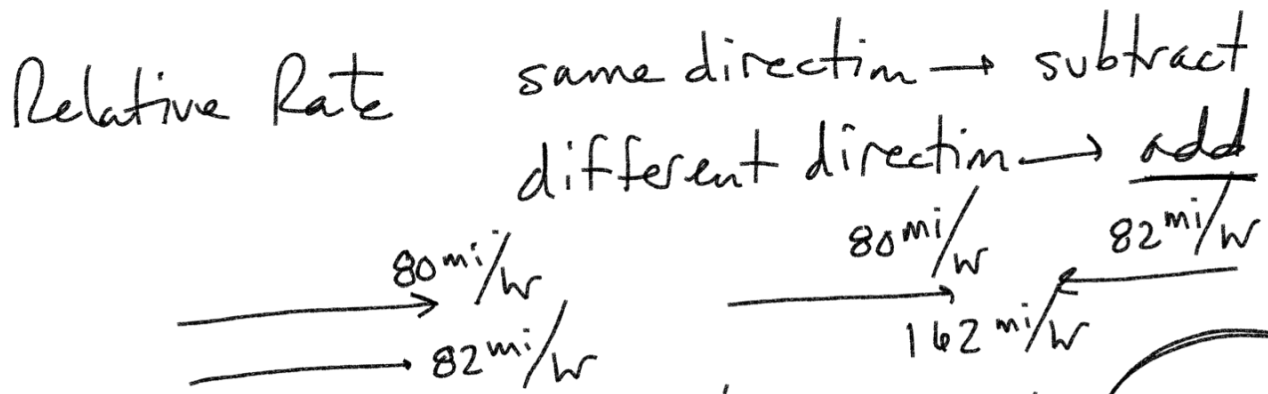 Relative Rate same direction → subtract
different direction → add
80 mi/hr 80 mi/hr 82 mi/hr
82 mi/hr 162 mi/hr